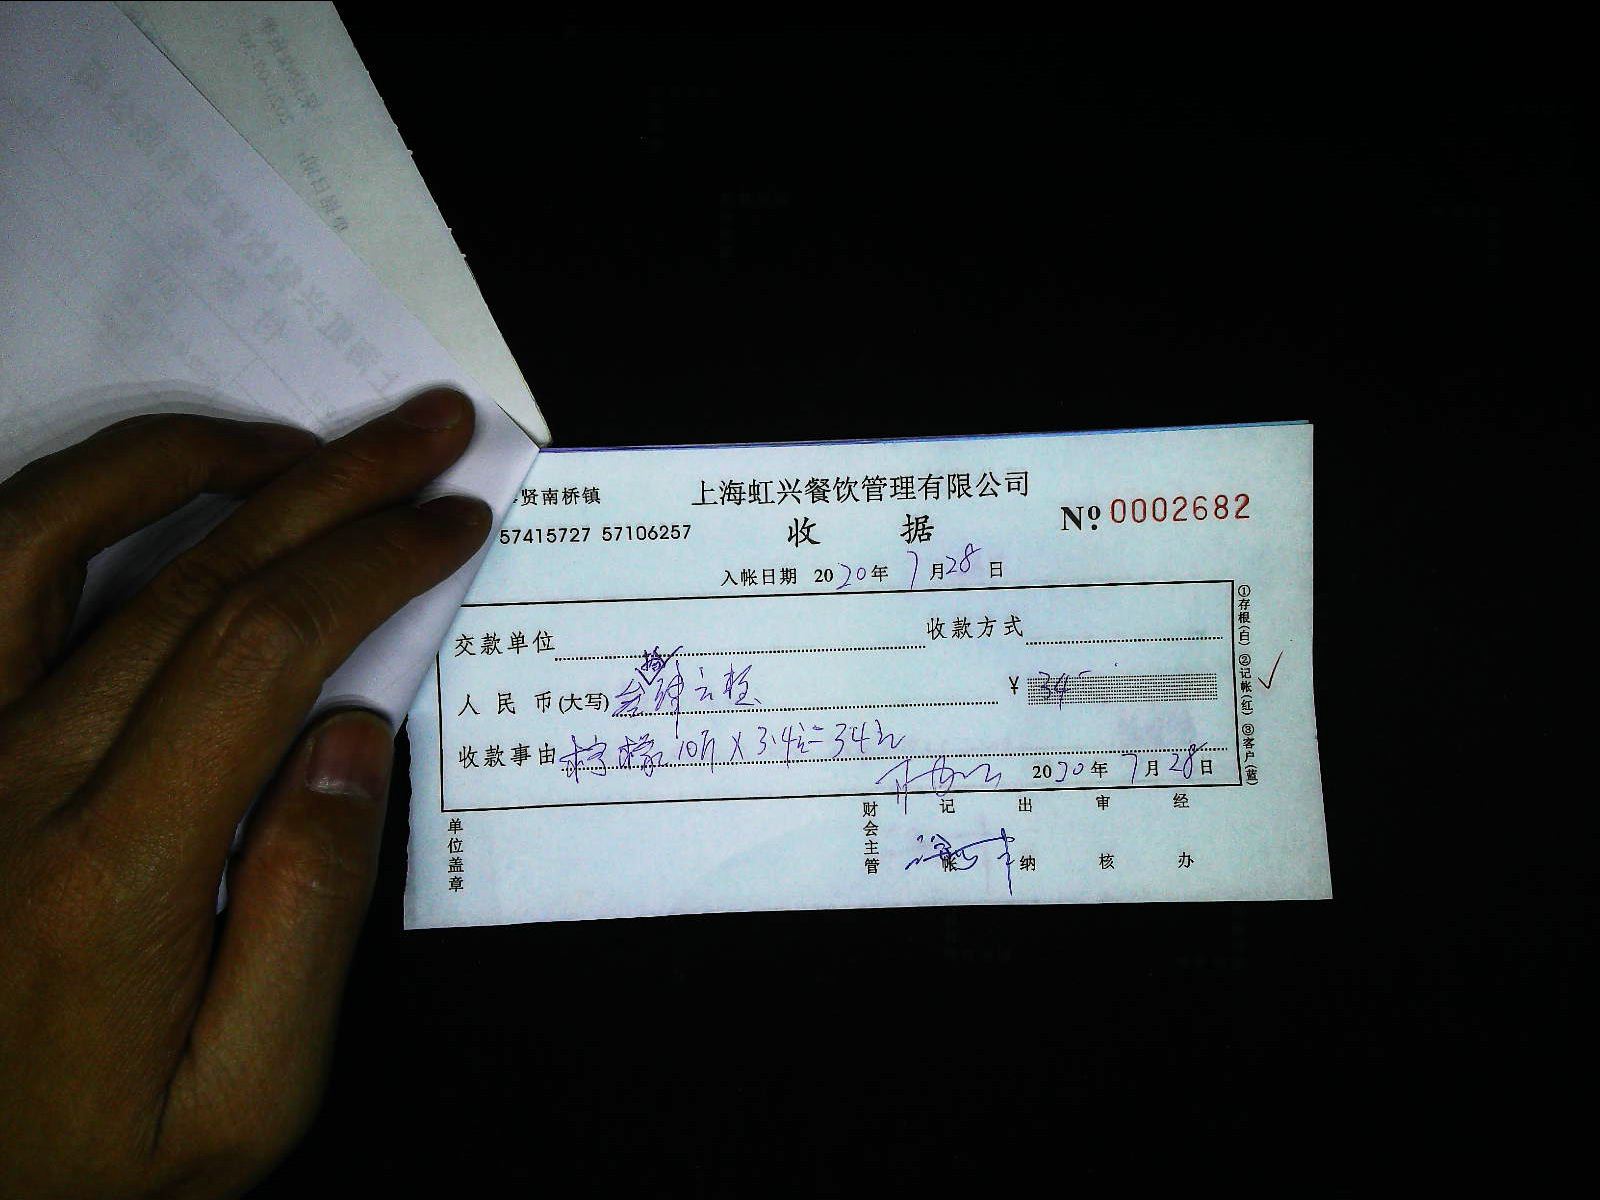 贤南桥镇
上海虹兴餐饮管理有限公司
57415727 57106257
收 据
№ 0002682
入帐日期 2020年 7月28日
交款单位
收款方式
人民币(大写) 叁拾肆元整
¥ 34
收款事由 柠檬10斤×3.4元=34元
2020年 7月28日
①存根(白) ②记帐(红) ③客户(蓝)
单位盖章
财会主管
记帐
出纳
审核
经办